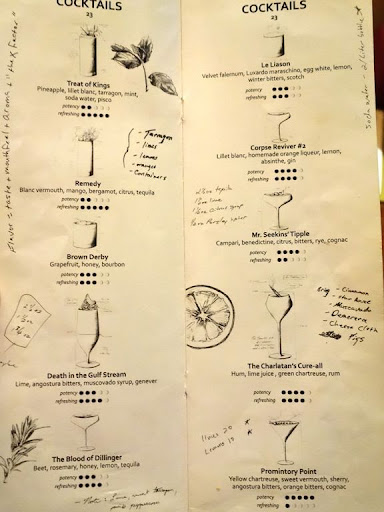 COCKTAILS
23
Treat of Kings
Pineapple, lillet blanc, tarragon, mint,
soda water, pisco
potency
refreshing
Flavor = taste + mouthfeel + aroma + "the X factor"
- Tarragon
- limes
- lemons
- oranges
- Containers
Remedy
Blanc vermouth, mango, bergamot, citrus, tequila
refreshing
Brown Derby
Grapefruit, honey, bourbon
potency
refreshing
Death in the Gulf Stream
Lime, angostura bitters, muscovado syrup, genever
potency
refreshing
The Blood of Dillinger
Beet, rosemary, honey, lemon, tequila
potency
refreshing
COCKTAILS
23
Le Liason
Velvet falernum, Luxardo maraschino, egg white, lemon,
winter bitters, scotch
potency
refreshing
Soda water - 2 liter bottle
Corpse Reviver #2
Lillet blanc, homemade orange liqueur, lemon,
absinthe, gin
potency
refreshing
Mr. Seekins' Tipple
Campari, benedictine, citrus, bitters, rye, cognac
potency
refreshing
- Cinnamon
- Star anise
- Muscovado
- Demerara
- Cheese Cloth
Figs
The Charlatan's Cure-all
Hum, lime juice, green chartreuse, rum
potency
refreshing
limes 20
Lemons 15
Promintory Point
Yellow chartreuse, sweet vermouth, sherry,
angostura bitters, orange bitters, cognac
potency
refreshing